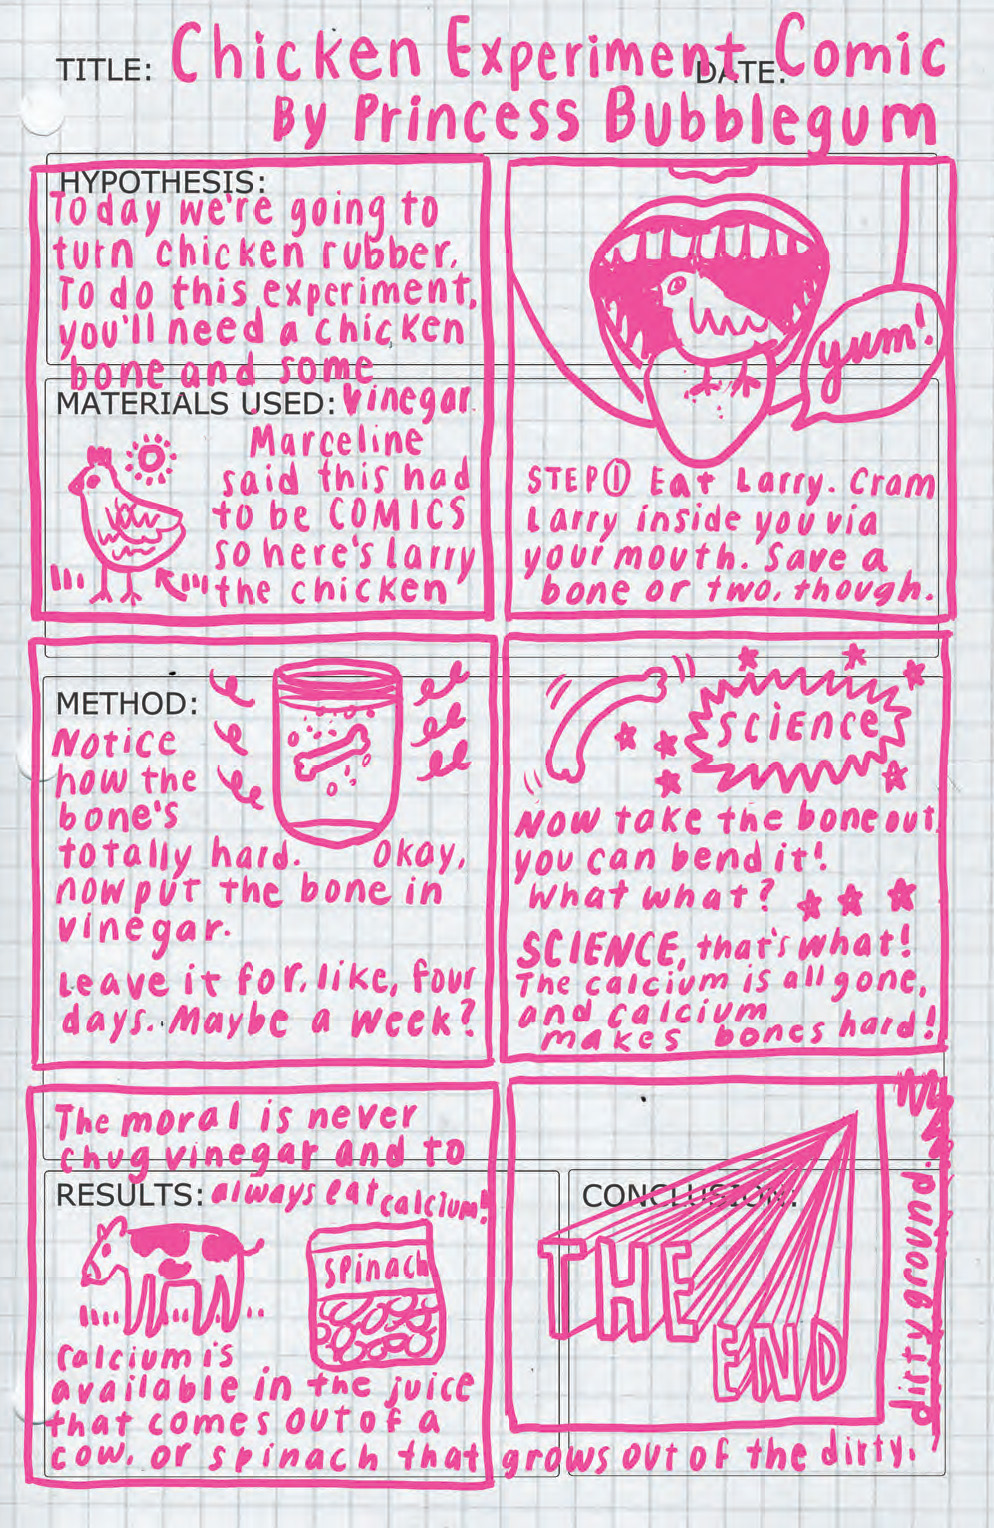 TITLE: Chicken Experiment Comic
DATE:
By Princess Bubblegum
HYPOTHESIS:
Today we're going to
turn chicken rubber.
To do this experiment,
you'll need a chicken
bone and some
MATERIALS USED: Vinegar
Marceline
said this had
to be COMICS
so here's larry
the chicken
yum!
STEP ① Eat Larry. Cram
Larry inside you via
your mouth. Save a
bone or two, though.
METHOD:
Notice
how the
bone's
totally hard. Okay,
now put the bone in
vinegar.
Leave it for, like, four
days. Maybe a week?
SCIENCE
Now take the bone out,
you can bend it!
What what?
SCIENCE, that's what!
The calcium is all gone,
and calcium
makes bones hard!
The moral is never
chug vinegar and to
RESULTS: always eat calcium!
spinach
Calcium is
available in the juice
that comes out of a
cow, or spinach that grows out of the dirty,
dirty ground.
CONCLUSION:
THE
END